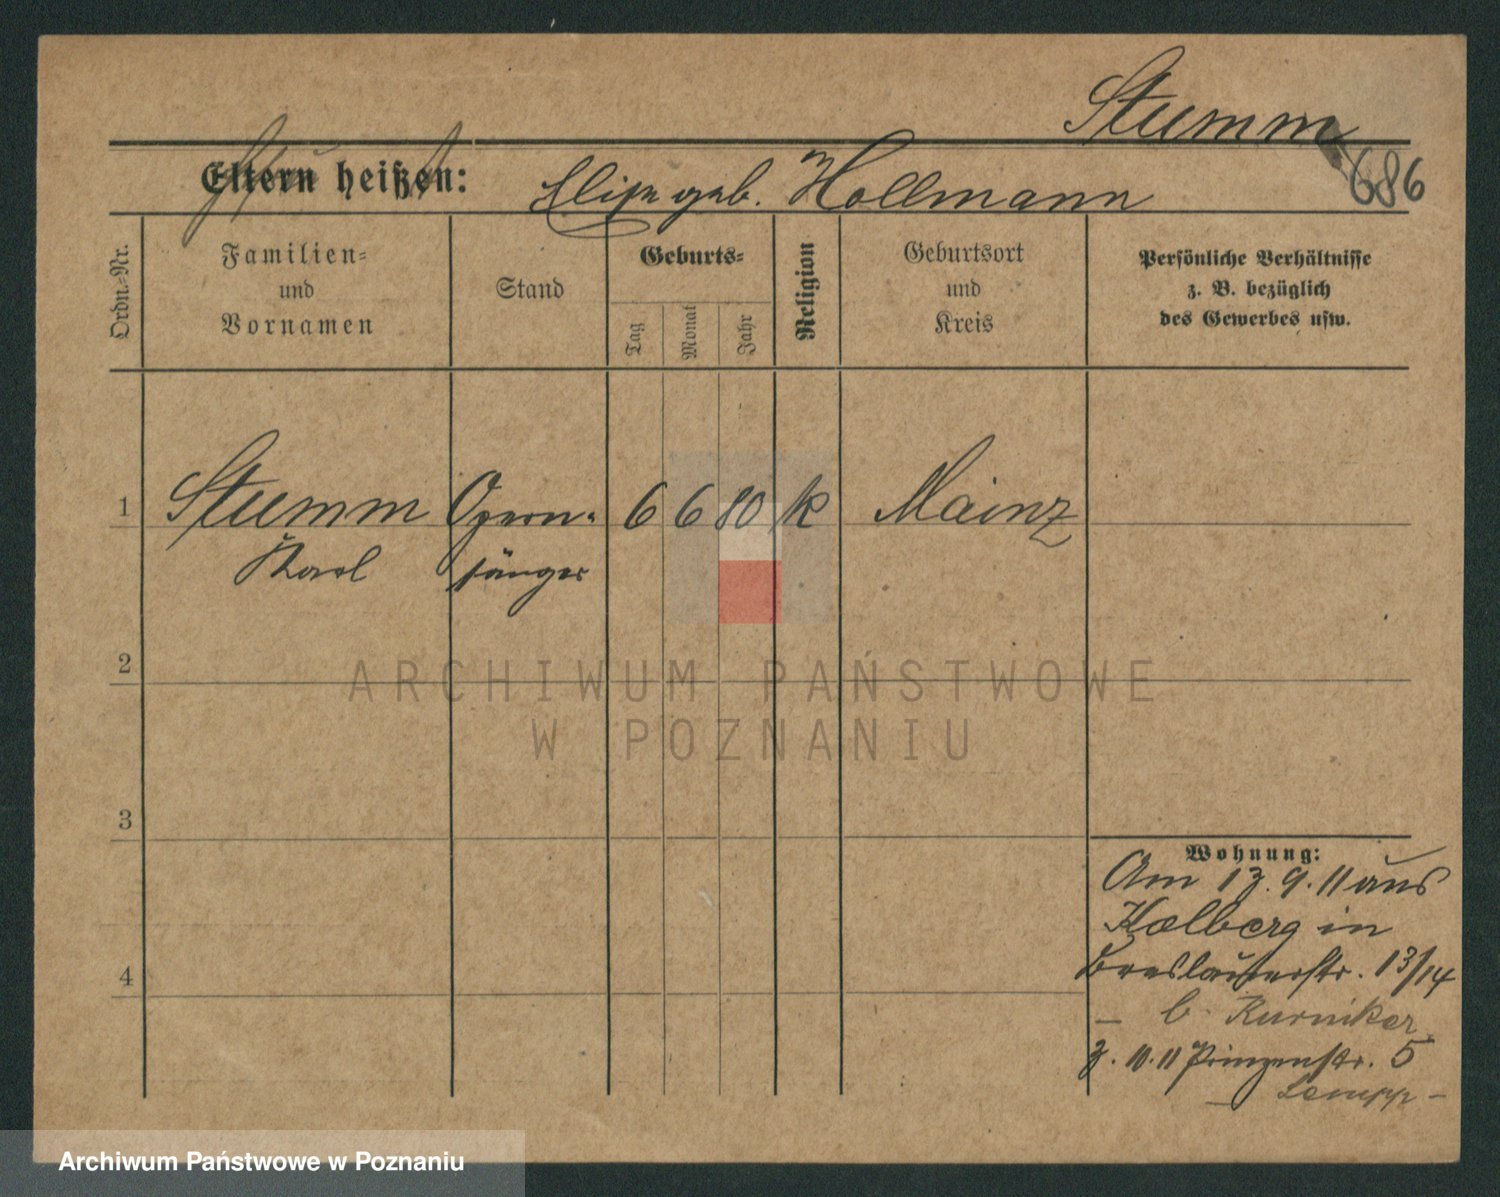 Stumm
686
Eltern heißen: Elise geb. Hollmann
Ordn.-Nr.
Familien-
und
Vornamen
Stand
Geburts-
Tag
Monat
Jahr
Religion
Geburtsort
und
Kreis
Persönliche Verhältnisse
z. B. bezüglich
des Gewerbes usw.
1 Stumm Opern- 6 6 80 k Mainz
Karl sänger
2
ARCHIWUM PAŃSTWOWE
W POZNANIU
3
Wohnung:
Am 13.9.11 aus
Kolberg in
Breslauerstr. 13/14
– b. Kurniker
3.10.11 Prinzenstr. 5
4
Archiwum Państwowe w Poznaniu